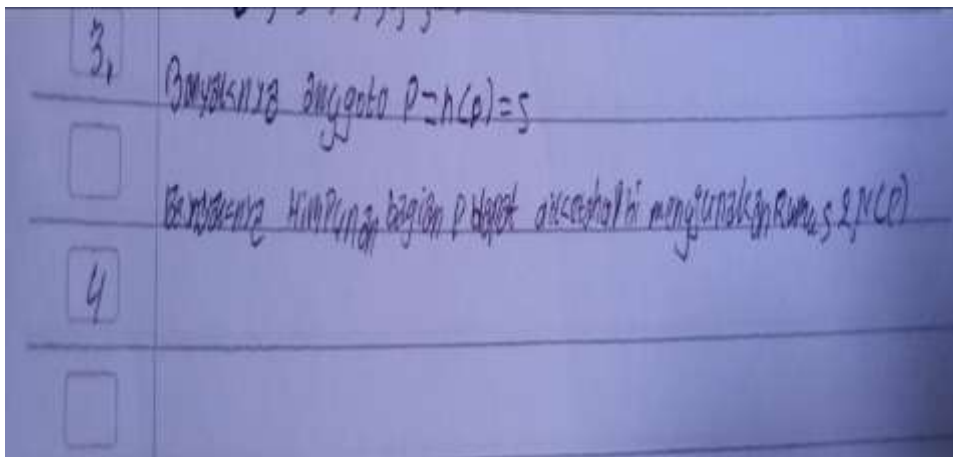 3,
Banyaknya anggota P = n(P) = 5
Banyaknya Himpunan bagian P dapat diketahui menggunakan Rumus 2,N(P)
4